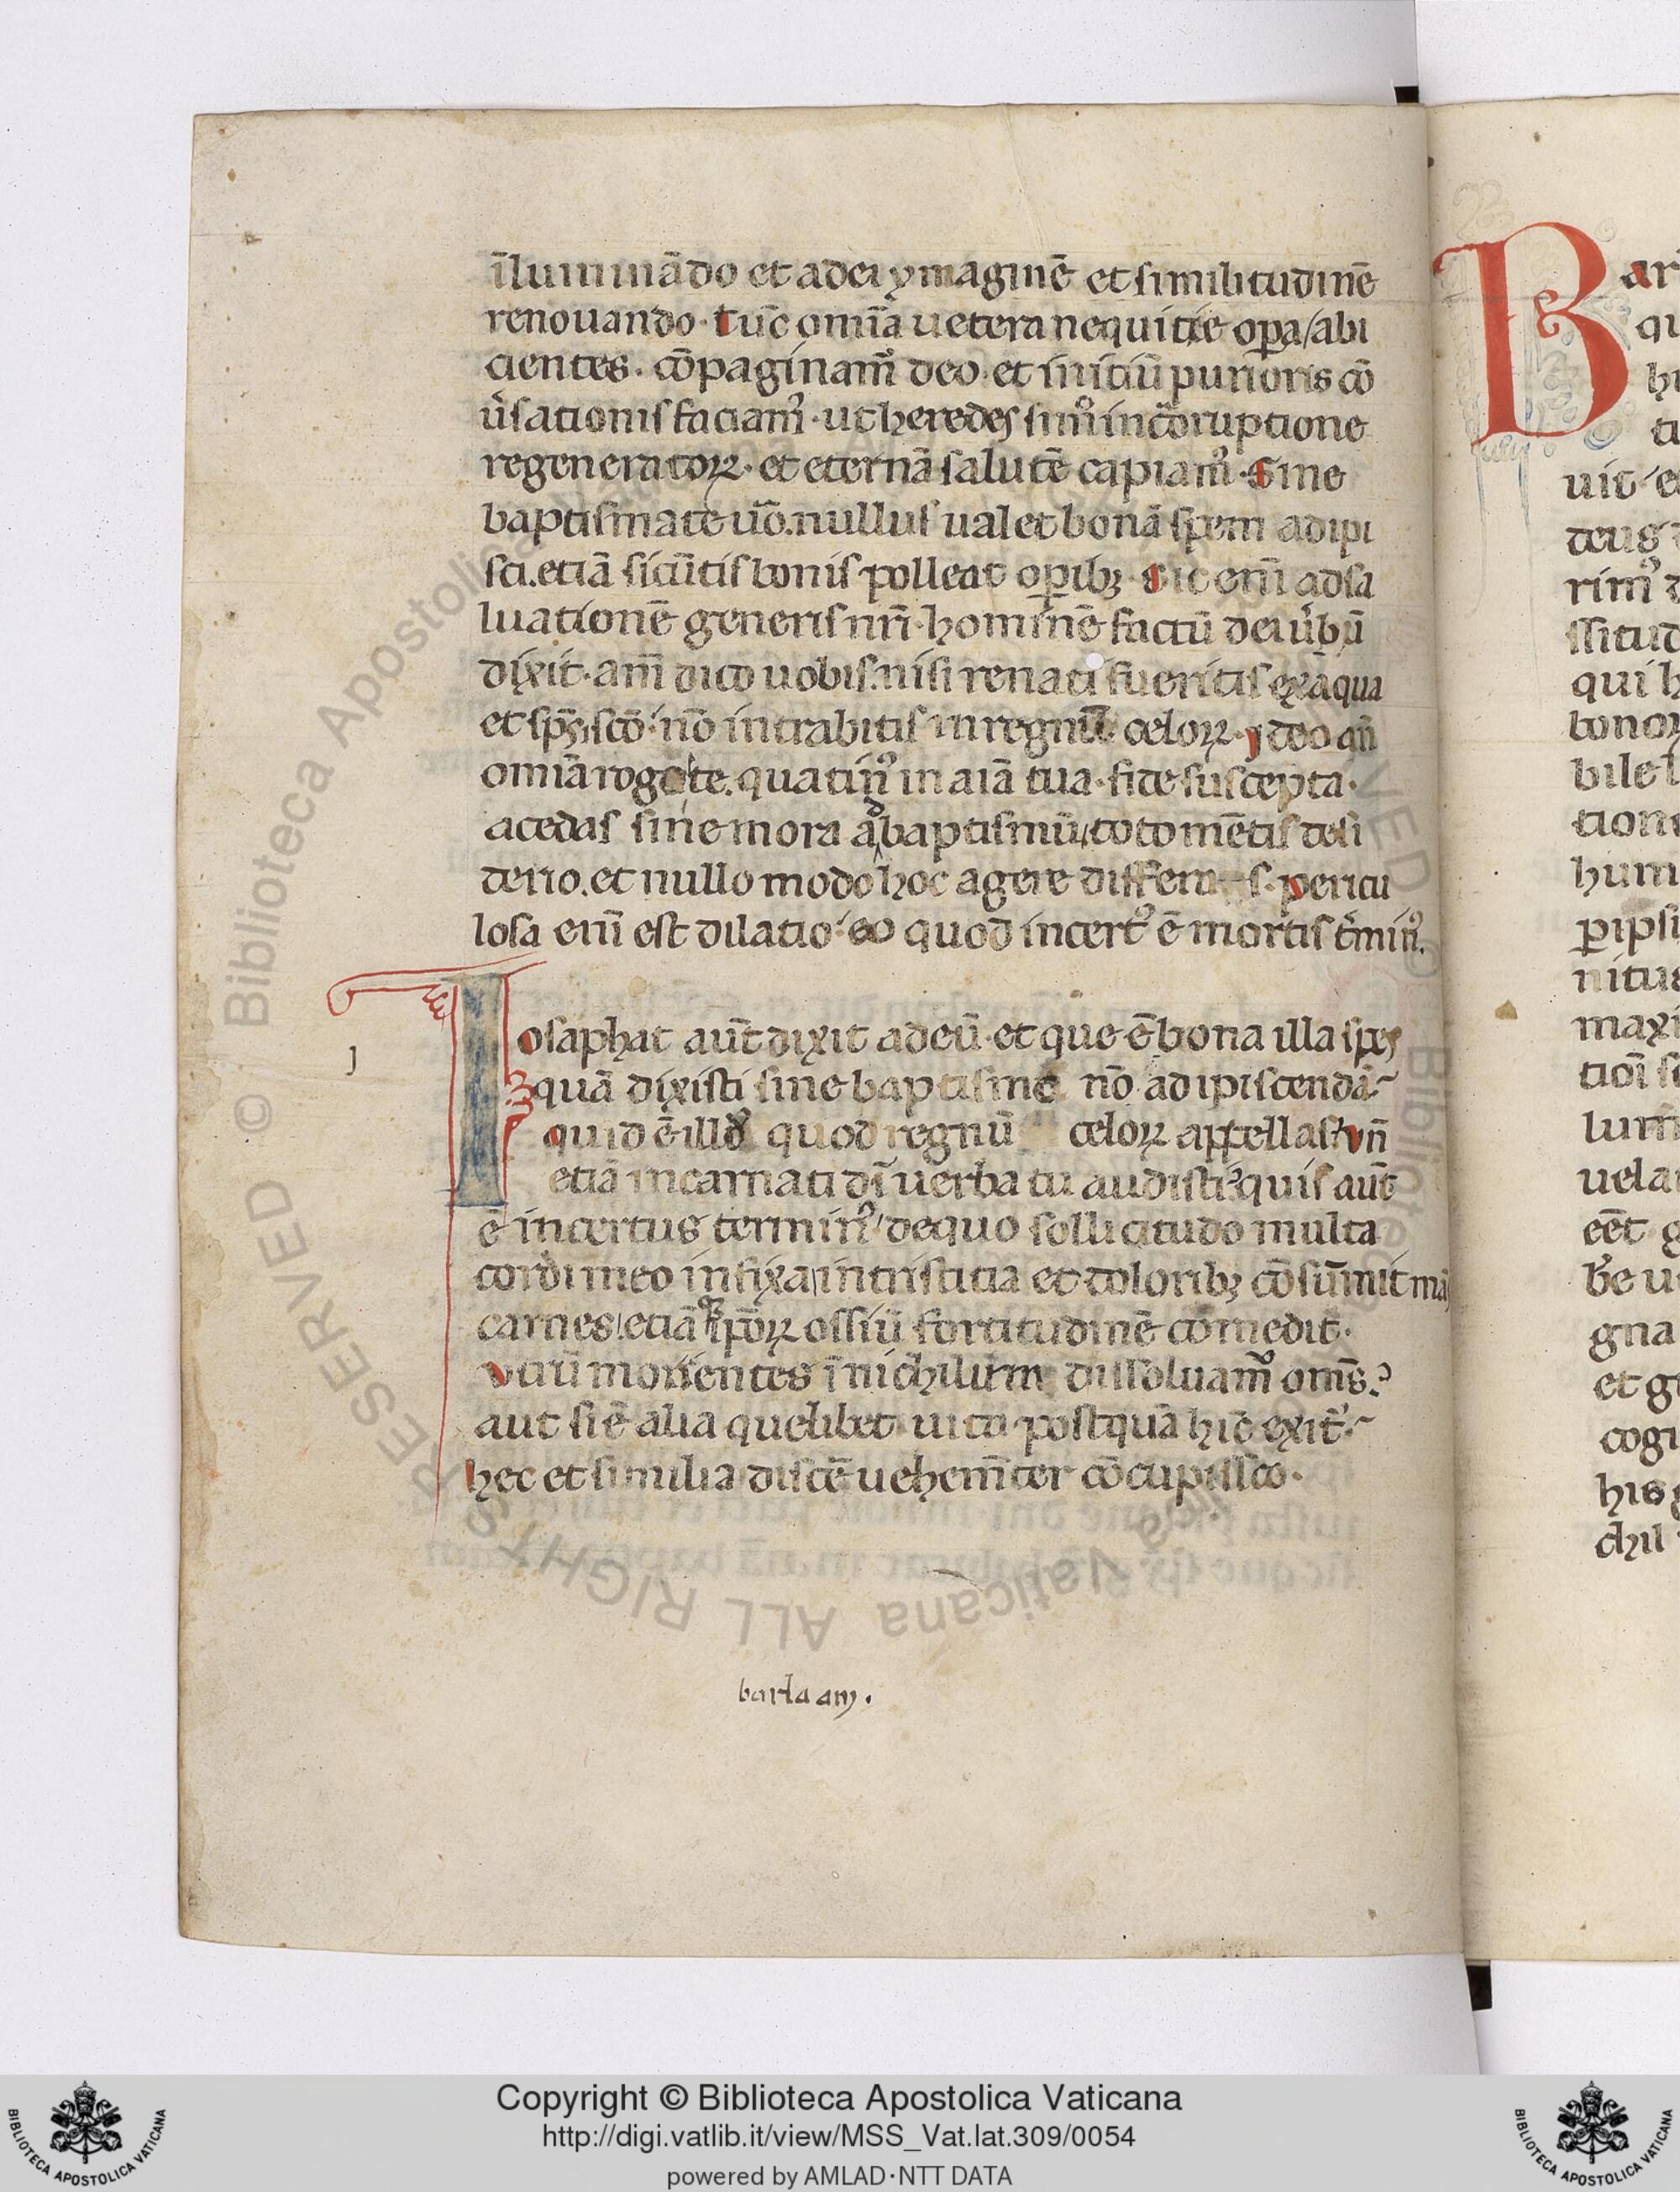 īluminādo et a dei ymaginē et similitudinē
renouando. tūc omīa uetera nequitie opa/abi
cientes. cōpaginam᷒ deo. et initiū purioris cō
ůsationis faciam᷒. ut heredes sim᷒ incōruptione
regeneratoꝝ. et eternā salutē capiam᷒. Sine
baptismate uō. nullus ualet bonā spem adipi
sci. etiā si cūtis bonis polleat oꝑibꝫ. Sic enī ad sa
luationē generis nr̄i. hominē factū dei ůbū
dixit. am̄ dico uobis. nisi renati fueritis ex āqua
et sp̄u sc̄o. nō intrabitis in regnū celoꝝ. ideo an̄
omīa rogo te. quatin᷒ in aīa tua. fide suscepta.
acedas sine mora ad baptismū, toto mētis desi
derio. et nullo modo hoc agere differas. pericu
losa enī est dilatio. eo quod incert᷒ ē mortis t̄min᷒.
Iosaphat aut̄ dixit ad eū. et que ē bona illa spes
quā dixisti sine baptisme nō adipiscendā
quid ē illud quod regnū celoꝝ appellas. vn̄
etiā incarnati dī uerba tu audisti? quis aut̄
ē incertus termin᷒/ de quo sollicitudo multa
cordi meo infixa, in tristitia et doloribꝫ cōsūmit mās
carnes, etiā ipōꝝ ossiū fortitudinē comedit.
vtrū morientes ī nichilum dissoluam᷒ om̄s.?
aut si ē alia quelibet uita postquā hīc exit᷒.
hec et similia discē uehem̄ter cōcupisco.
J
barlaam.
B
ar
qu
hi
ti
uit
deus
rim᷒ d
ssitud
qui h
bonoꝝ
bile
tion
hum
ꝑ ipsi
nitus
maxi
tiōi
lum
uel a
eēt g
b̄e u
gna
et g
cogi
his
chil
Copyright © Biblioteca Apostolica Vaticana
http://digi.vatlib.it/view/MSS_Vat.lat.309/0054
powered by AMLAD·NTT DATA
BIBLIOTECA APOSTOLICA VATICANA
BIBLIOTECA APOSTOLICA VATICANA
© Biblioteca Apostolica Vaticana ALL RIGHTS RESERVED